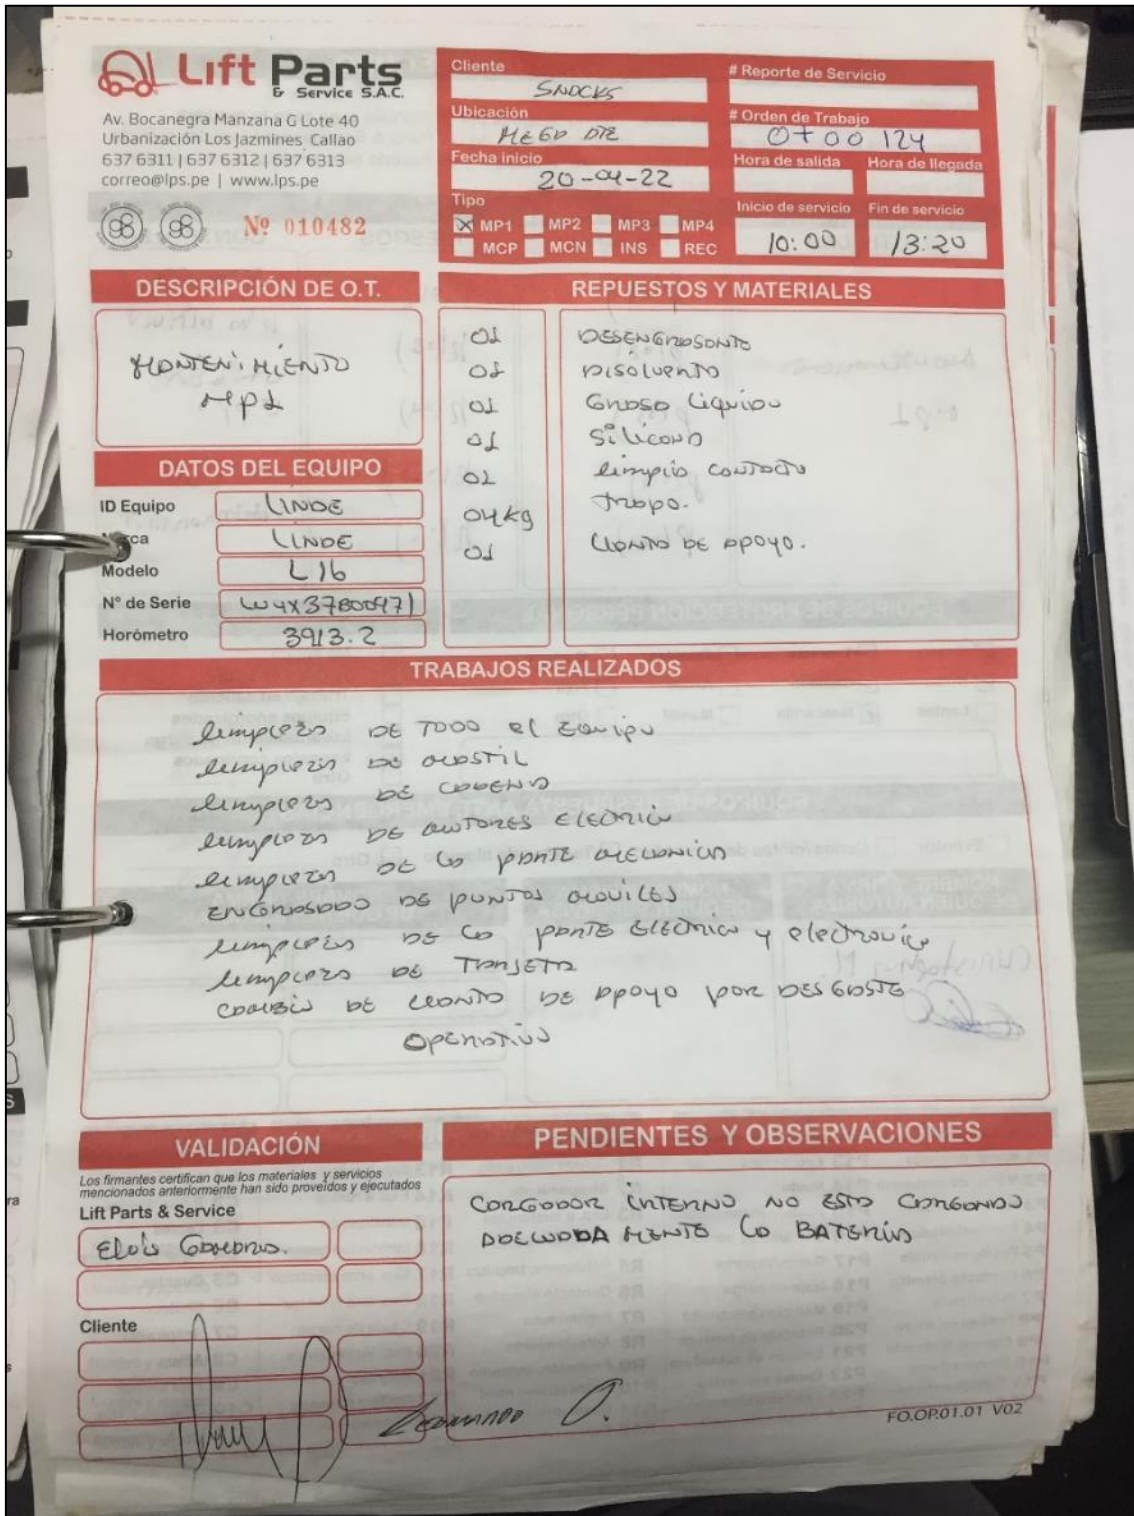 Lift Parts
& Service S.A.C.
Av. Bocanegra Manzana G Lote 40
Urbanización Los Jazmines, Callao
637 6311 | 637 6312 | 637 6313
correo@lps.pe | www.lps.pe
Nº 010482
Cliente
SNACKS
Ubicación
MEGA DTE
Fecha inicio
20-04-22
Tipo
X MP1 MP2 MP3 MP4
MCP MCN INS REC
# Reporte de Servicio
# Orden de Trabajo
0T00124
Hora de salida Hora de llegada
Inicio de servicio Fin de servicio
10:00 13:20
DESCRIPCIÓN DE O.T.
MANTENIMIENTO
MP1
DATOS DEL EQUIPO
ID Equipo LINDE
Marca LINDE
Modelo L16
N° de Serie
Horómetro 3913.2
REPUESTOS Y MATERIALES
01 DESENGRASANTE
01 DISOLVENTE
01 GRASA LIQUIDA
01 SILICONA
01 limpia contacto
04kg trapo.
01 LLANTA DE APOYO.
TRABAJOS REALIZADOS
limpieza DE TODO el EQUIPO
limpieza DE MASTIL
limpieza DE CADENA
limpieza DE MOTORES ELECTRICO
limpieza DE LA PARTE MECANICA
ENGRASADO DE PUNTOS MOVILES
limpieza DE LA PARTE ELECTRICA y electronica
limpieza DE TARJETA
CAMBIO DE LLANTA DE APOYO POR DESGASTE
OPERATIVO
VALIDACIÓN
Los firmantes certifican que los materiales y servicios
mencionados anteriormente han sido proveídos y ejecutados
Lift Parts & Service
Cliente
PENDIENTES Y OBSERVACIONES
CARGADOR INTERNO NO ESTA CARGANDO
ADECUADAMENTE LA BATERIA
FO.OP.01.01 V02